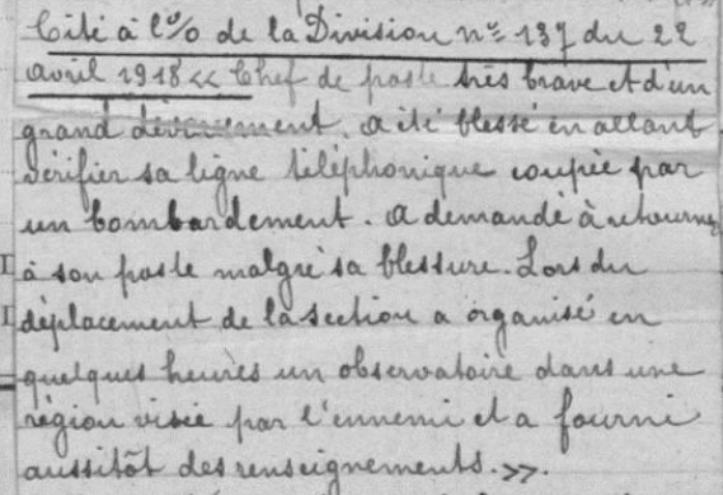 Cité à l'o/o de la Division n° 137 du 22
avril 1918 << Chef de poste très brave et d'un
grand dévouement. a été blessé en allant
vérifier sa ligne téléphonique coupée par
un bombardement. a demandé à retourner
à son poste malgré sa blessure. Lors du
déplacement de la section a organisé en
quelques heures un observatoire dans une
région visée par l'ennemi et a fourni
aussitôt des renseignements. >>.